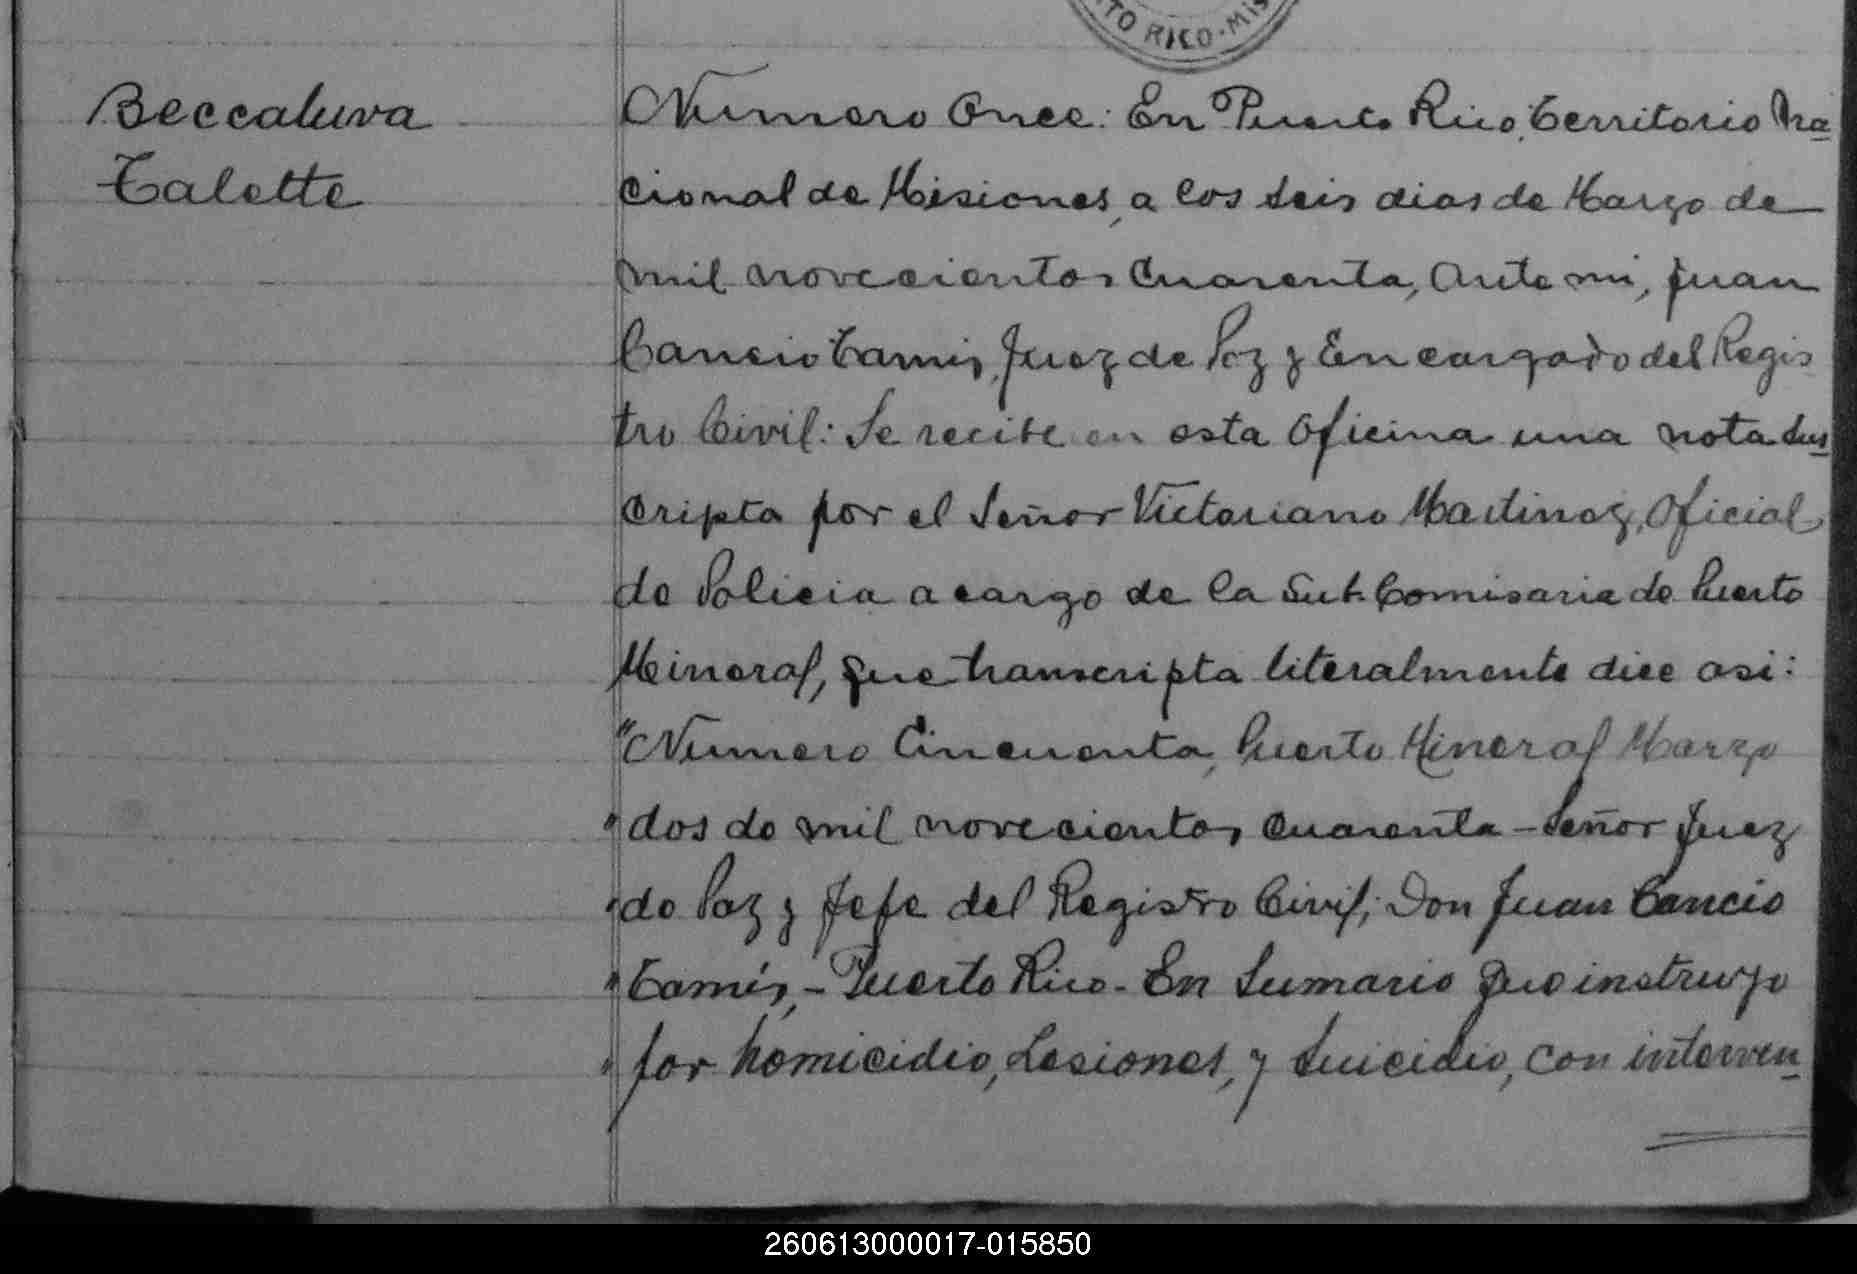 TO RICO-MIS
Beccaluva
Talette
Número Once: En Puerto Rico, Territorio Na
cional de Misiones, a los seis dias de Marzo de
mil novecientos cuarenta, Ante mi, Juan
Cancio Tamis, Juez de Paz y Encargado del Regis
tro Civil: Se recibe en esta Oficina una nota sus
cripta por el Señor Victoriano Martinez, Oficial
de Policia a cargo de la Sub-Comisaria de Puerto
Mineral, que transcripta literalmente dice asi:
"Número Cincuenta, Puerto Mineral Marzo
" dos de mil novecientos cuarenta - Señor Juez
" de Paz y Jefe del Registro Civil; Don Juan Cancio
" Tamís, - Puerto Rico - En Sumario que instruyo
" por homicidio, Lesiones, y Suicidio, con interven
260613000017-015850